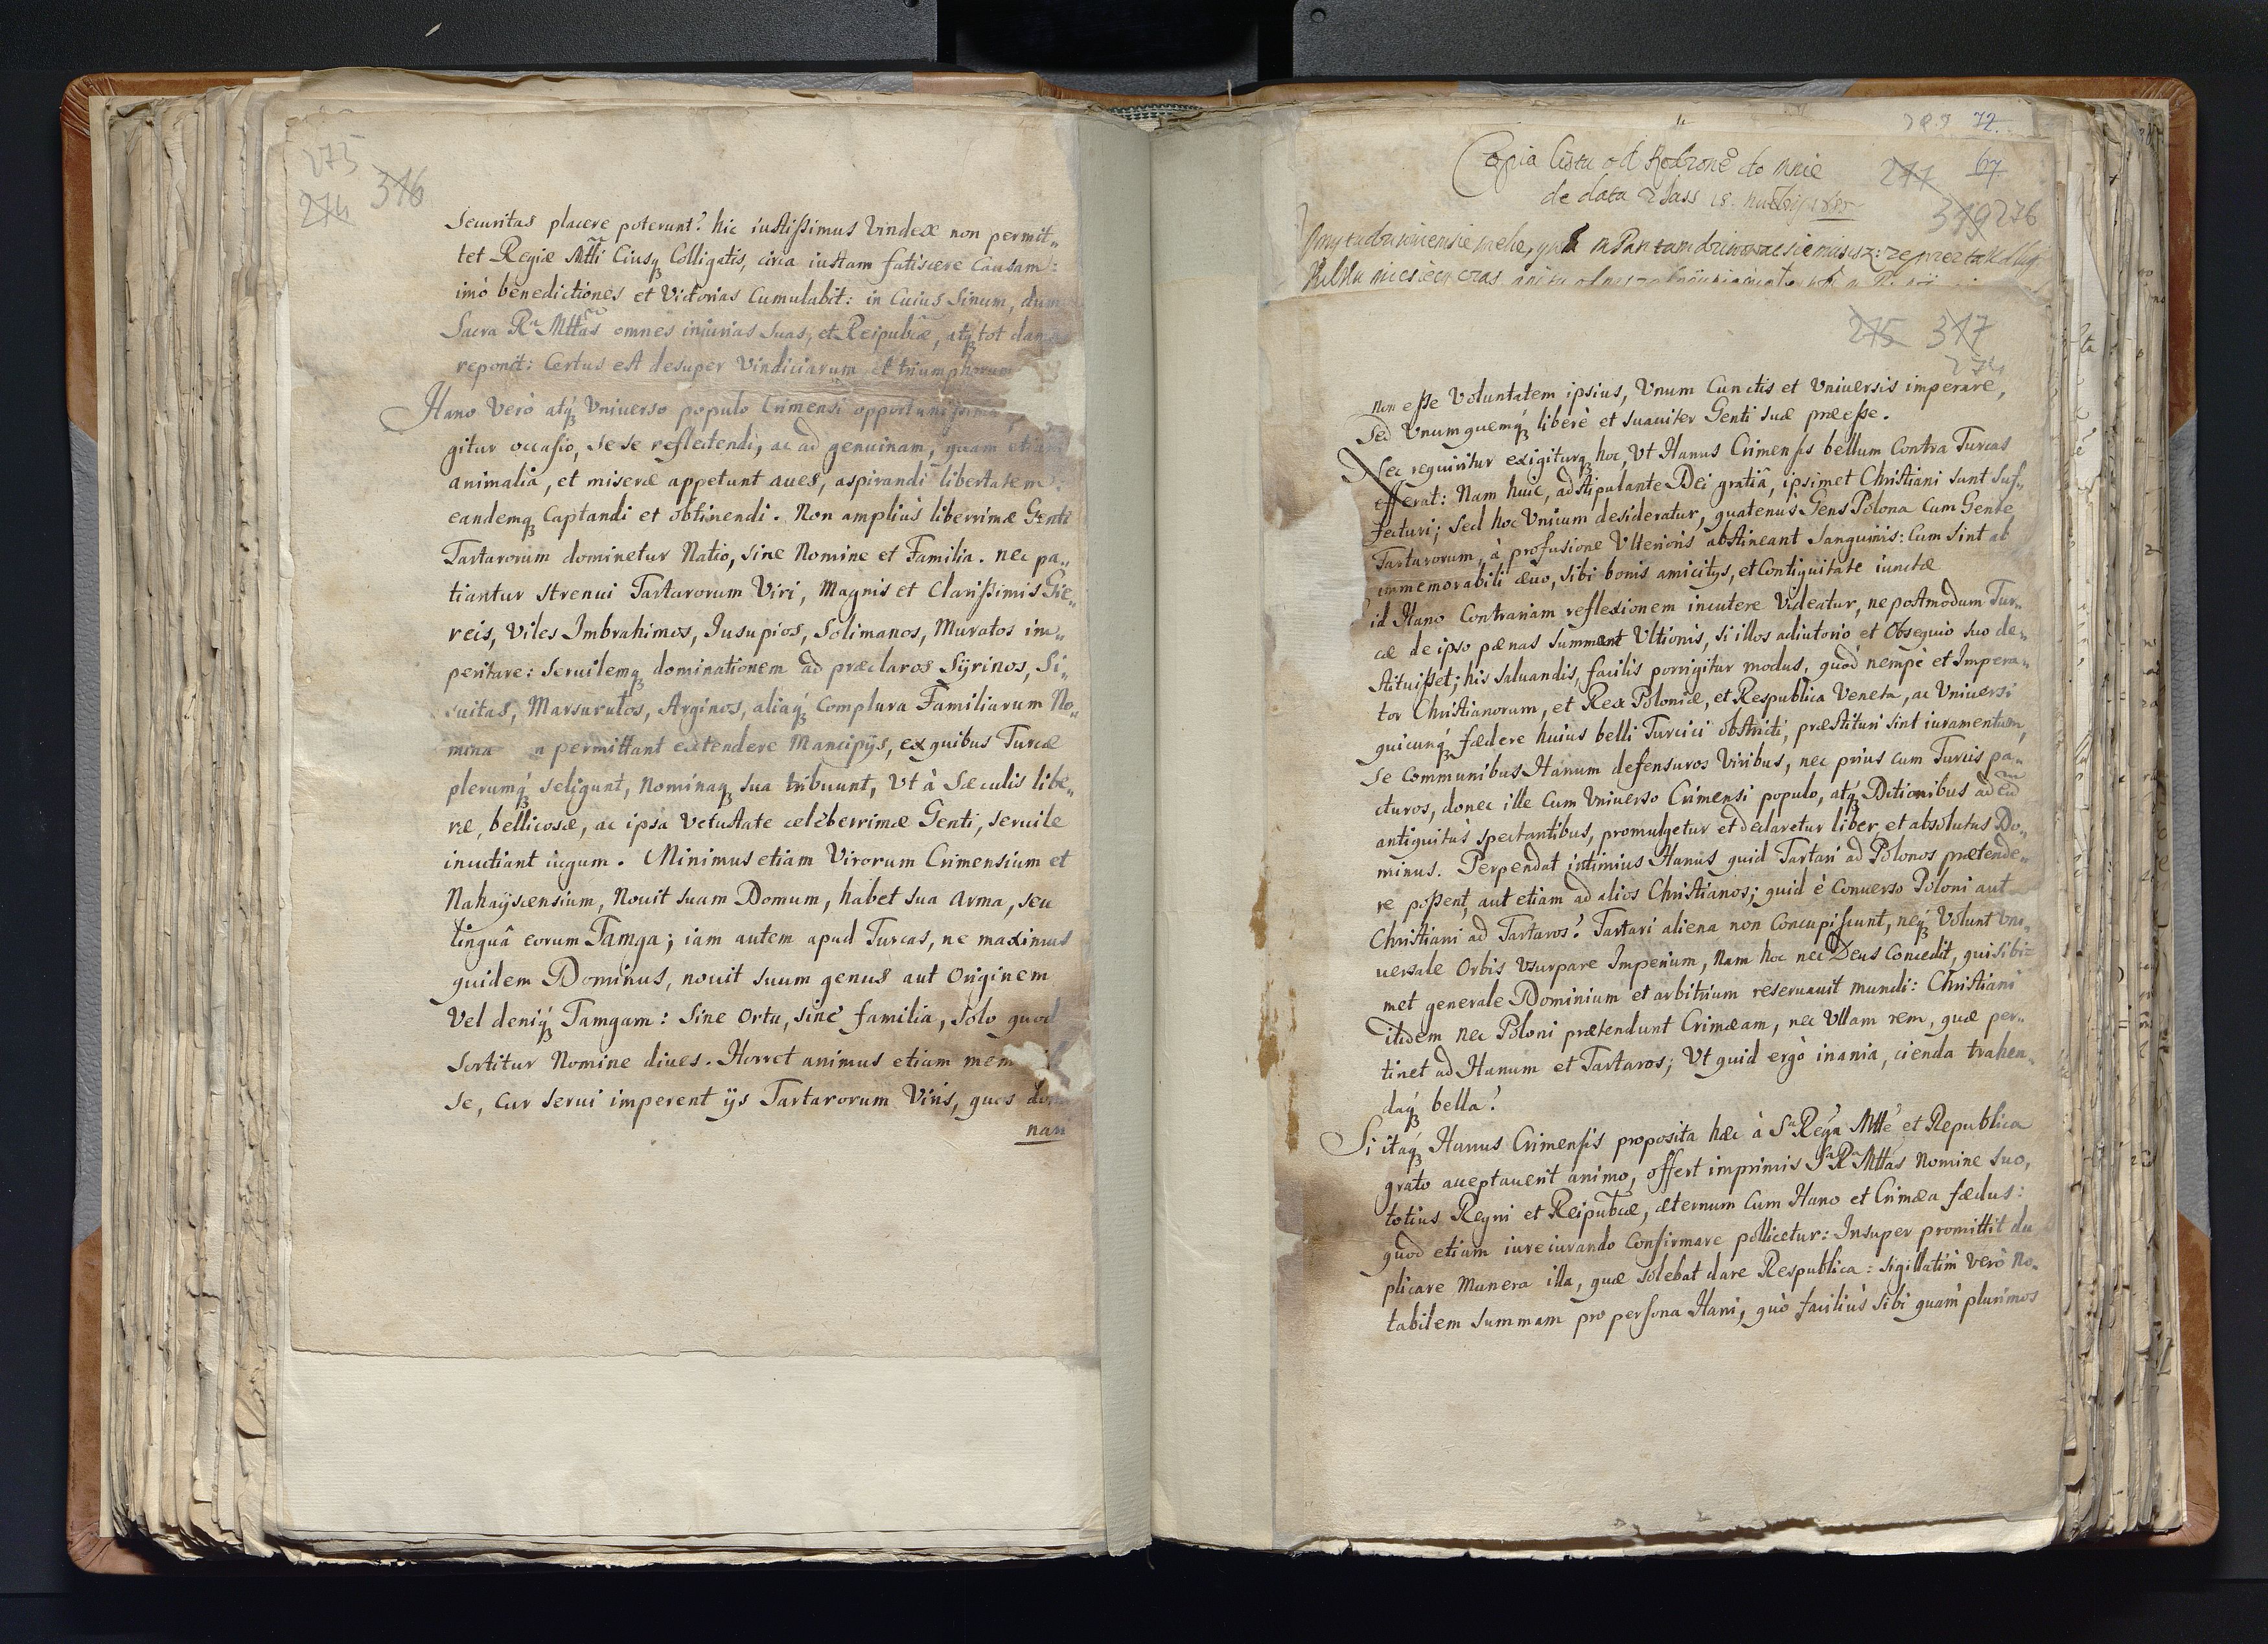 275
274 316
Securitas placere poterunt? hic iustissimus Vindex non permit„
tet Regiæ Mtti Eiusq Colligatis, circa iustam fatiscere Causam:
imò benedictiones et Victorias Cumulabit: in Cuius Sinum, dum
Sacra Ra Mttas omnes iniurias Suas, et Reipubcæ, atq tot dam
reponit: Certus est desuper Vindiciarum et triumphorum
Hano Verò atq Vniuerso populo Crimensi
gitur occasio, se se reflectendi, ac ad genuinam, quam etiam
animalia, et miseræ appetunt aues, aspirandi libertatem:
eandemq Captandi et obtinendi. Non amplius liberrimæ Genti
Tartarorum dominetur Natio, sine Nomine et Familia. nec pa„
tiantur strenui Tartarorum Viri, Magnis et Clarissimis Gie„
reis, Viles Imbrahimos, Jusupios, Solimanos, Muratos im„
peritare: Seruilemq dominationem ad præclaros Syrinos, Si„
uitas, Marsurutos, Arginos, aliaq Complura Familiarum No„
mina permittant extendere Mancipijs, ex quibus Turcæ
plerumq seligunt, Nominaq sua tribuunt, Vt à Sæculis libe„
ræ, bellicosæ, ac ipsa Vetustate celeberrimæ Genti, seruile
incutiant iugum. Minimus etiam Virorum Crimensium et
Nahayscensium, Nouit suam Domum, habet sua Arma, seu
linguâ eorum Tamga; iam autem apud Turcas, ne maximus
quidem Dominus, nouit suum genus aut Originem
Vel deniq Tamgam: Sine Ortu, sine familia, solo quod
Sortitur Nomine diues. Horret animus etiam mem
se, Cur Serui imperent ijs Tartarorum Viris, quos do
nari
289 72.
Copia listu od do mnie
de data z Jass 18.
277 67
319 276
275 317
274
non esse Voluntatem ipsius, Vnum Cunctis et Vniuersis imperare,
Sed Vnumquemq liberè et suauiter Genti suæ præesse.
Nec requiritur exigiturq hoc, Vt Hanus Crimensis bellum Contra Turcas
efferat: Nam huic, adstipulante Dei gratiâ, ipsimet Christiani sunt suf„
fecturi; Sed hoc Vnicum desideratur, quatenus Gens Polona Cum Gente
Tartarorum, à profusione Vlterioris abstineant Sanguinis: Cum sint ab
immemorabili æuo, sibi bonis amicitys, et Contiguitate iunctæ
id Hano Contrariam reflexionem incutere Videatur, ne postmodum Tur„
cæ de ipso pænas summant Vltionis, si illos adiutorio et Obsequio suo de„
stituisset; his saluandis, facilis porrigitur modus, quod nempè et Impera„
tor Christianorum, et Rex Poloniæ, et Respublica Veneta, ac Vniuersi
quicunq fædere huius belli Turcici obstricti, præstituri sint iuramentum,
Se Communibus Hanum defensuros Viribus, nec prius cum Turcis pa„
cturos, donec ille Cum Vniuerso Crimensi populo, atq Ditionibus ad eũ
antiquitùs spectantibus, promulgetur et declaretur liber et absolutus Do„
minus. Perpendat intimius Hanus quid Tartari ad Polonos prætende„
re possent, aut etiam ad alios Christianos; quid è Conuerso Poloni aut
Christiani ad Tartaros? Tartari aliena non Concupiscunt, neq Volunt Vni„
uersale Orbis Vsurpare Imperium, Nam hoc nec Deus Concedit, qui sibi=
met generale Dominium et arbitrium reseruauit mundi: Christiani
itidem nec Poloni prætendunt Crimæam, nec Vllam rem, quæ per„
tinet ad Hanum et Tartaros; Vt quid ergò inania, cienda trahen„
daq bella?
Si itaq Hanus Crimensis proposita hæc à Sa Regia Mtte et Republica
grato acceptauerit animo, offert imprimis Sa Ra Mttas Nomine suo,
totius Regni et Reipubcæ, æternum Cum Hano et Crimæa fædus:
quod etiam iureiurando Confirmare pollicetur: Insuper promittit du
plicare Munera illa, quæ solebat dare Respublica: sigillatim Verò No„
tabilem summam pro persona Hani, quò facilius sibi quam plurimos